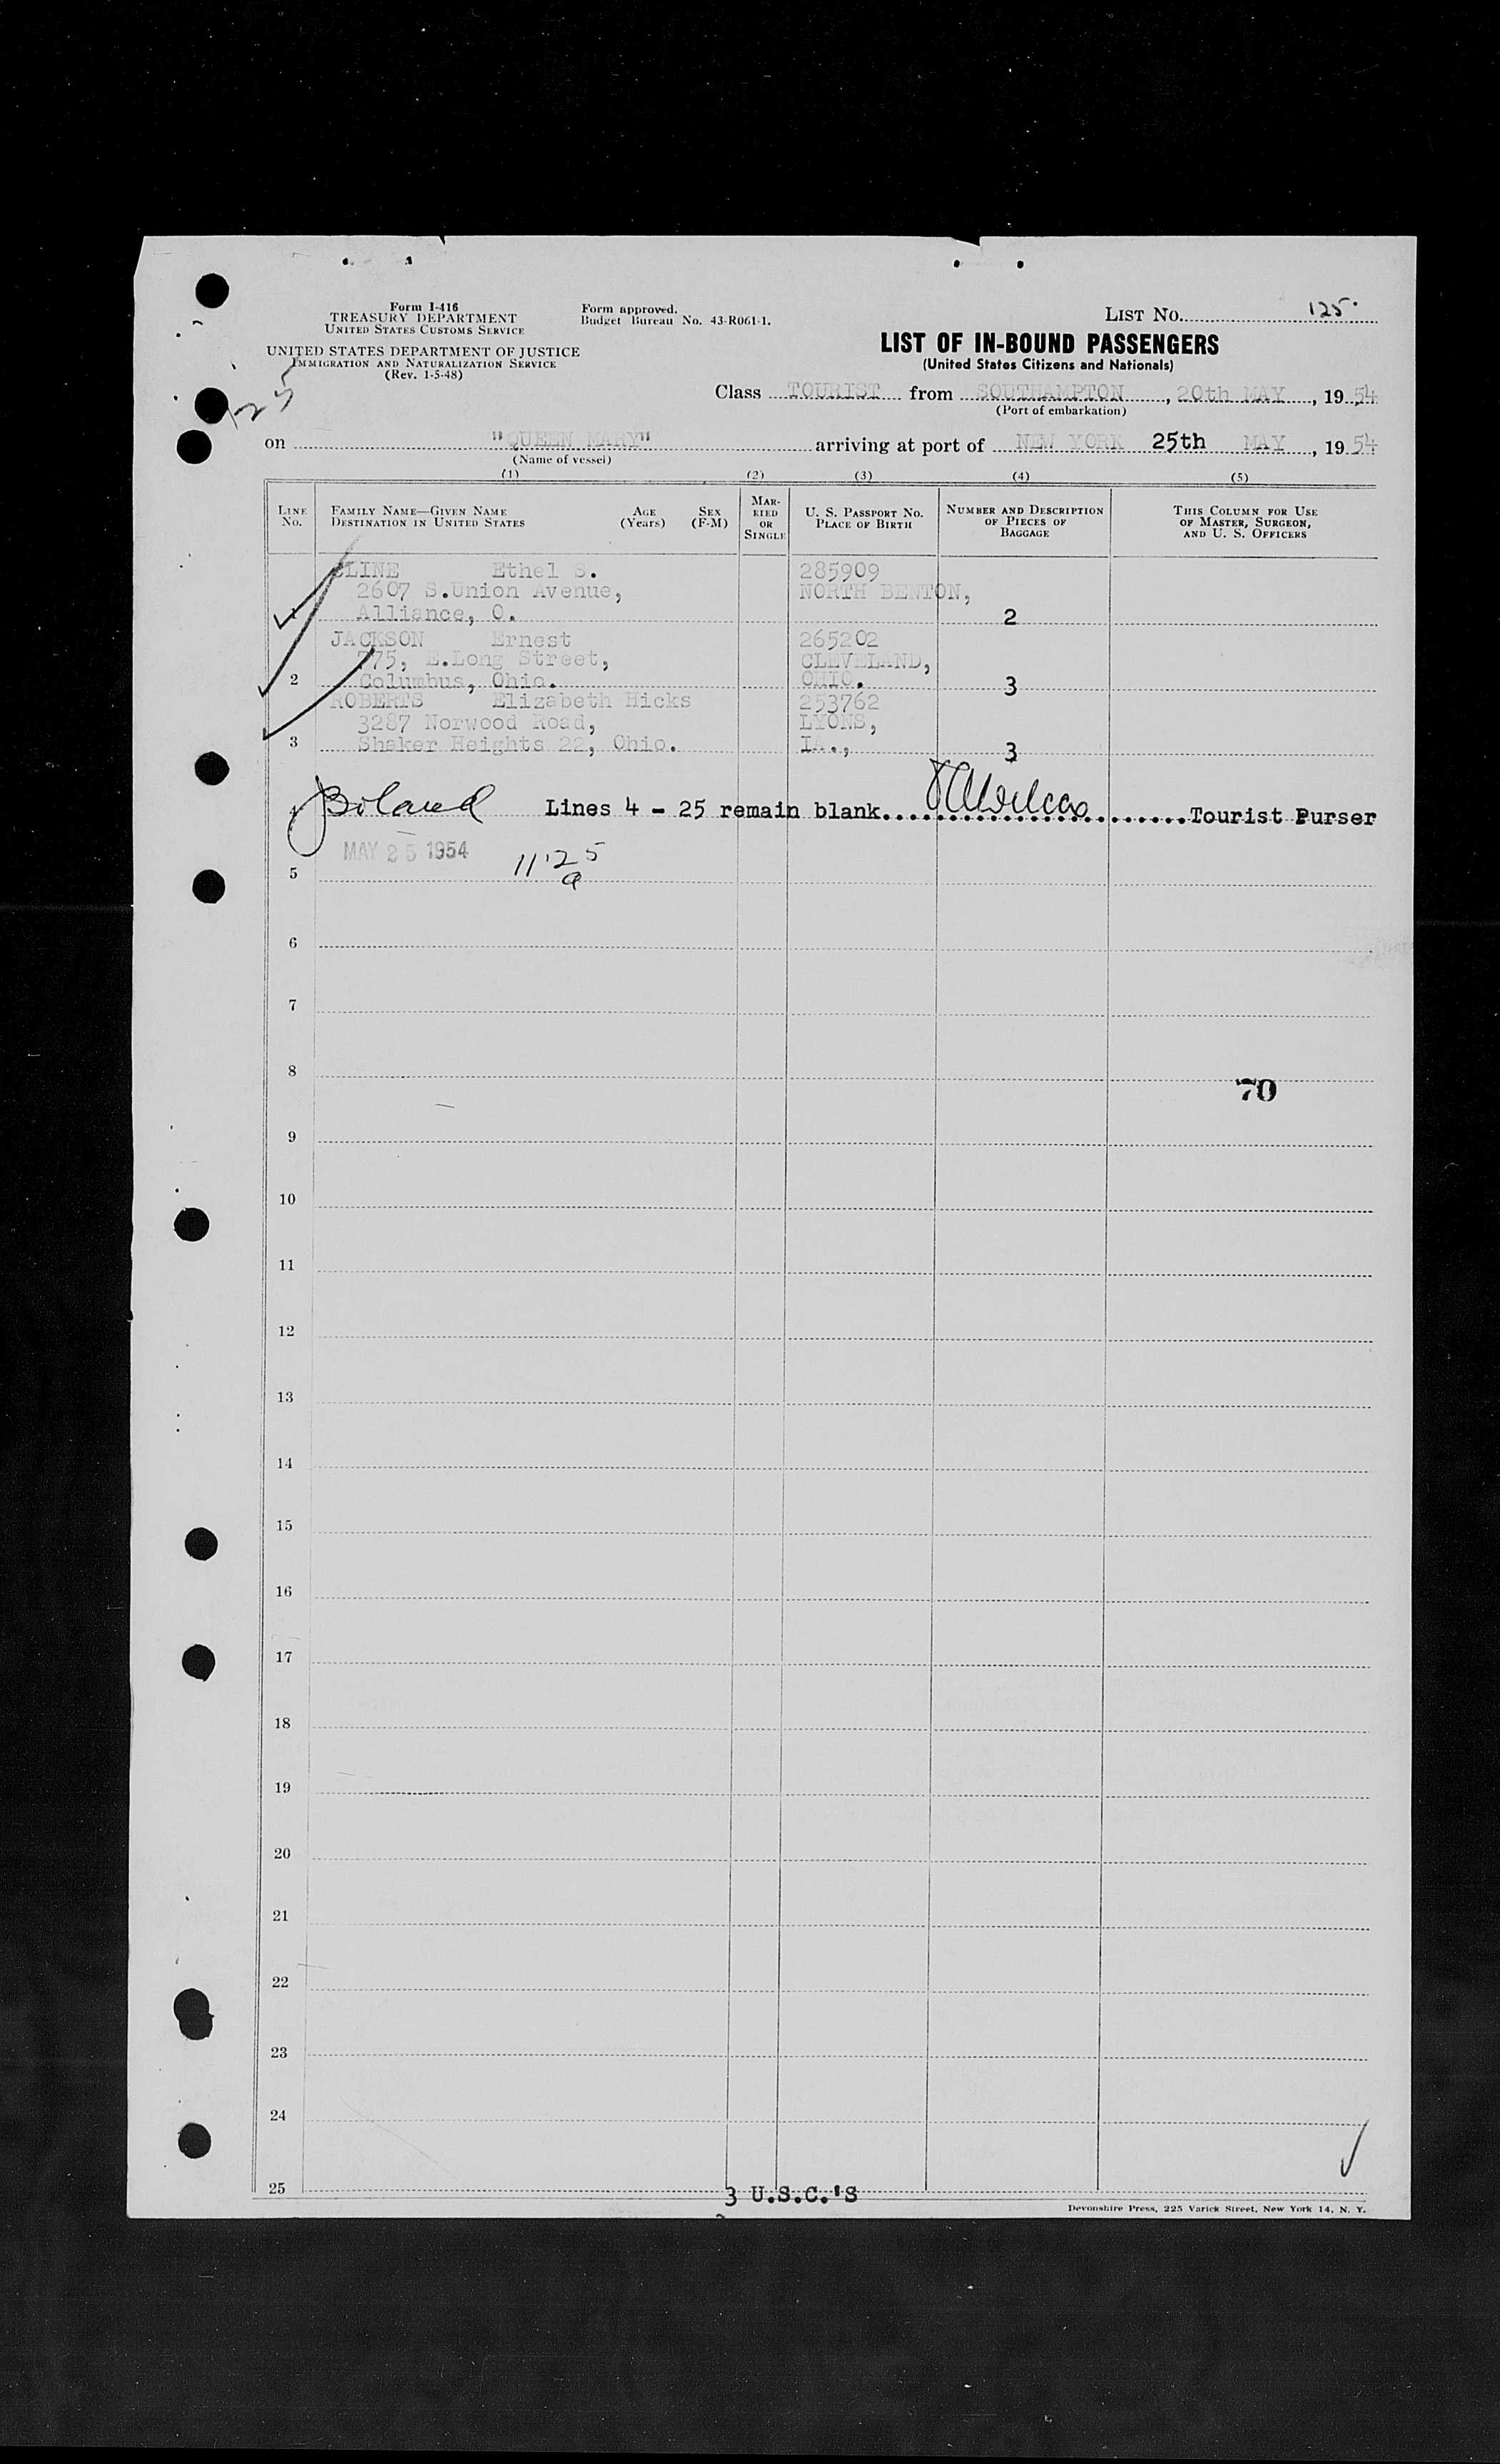 Form I-416
TREASURY DEPARTMENT
UNITED STATES CUSTOMS SERVICE
UNITED STATES DEPARTMENT OF JUSTICE
IMMIGRATION AND NATURALIZATION SERVICE
(Rev. 1-5-48)
125
Form approved.
Budget Bureau No. 43-R061-1.
LIST NO. 125
LIST OF IN-BOUND PASSENGERS
(United States Citizens and Nationals)
Class TOURIST from SOUTHAMPTON, 20th MAY, 1954
(Port of embarkation)
on "QUEEN MARY" arriving at port of NEW YORK 25th MAY, 1954
(Name of vessel)
(1) (2) (3) (4) (5)
LINE NO. FAMILY NAME—GIVEN NAME DESTINATION IN UNITED STATES AGE (Years) SEX (F-M) MARRIED OR SINGLE U. S. PASSPORT NO. PLACE OF BIRTH NUMBER AND DESCRIPTION OF PIECES OF BAGGAGE THIS COLUMN FOR USE OF MASTER, SURGEON, AND U. S. OFFICERS
CLINE Ethel S. 285909
2607 S.Union Avenue, NORTH BENTON,
1 Alliance, O. 2
JACKSON Ernest 265202
775, E.Long Street, CLEVELAND,
2 Columbus, Ohio. OHIO. 3
ROBERTS Elizabeth Hicks 253762
3287 Norwood Road, LYONS,
3 Shaker Heights 22, Ohio. IA., 3
4 Boland Lines 4 - 25 remain blank. Tourist Purser
MAY 25 1954 11:25 a
5
6
7
8
70
9
10
11
12
13
14
15
16
17
18
19
20
21
22
23
24
25
3 U.S.C.'S
Devonshire Press, 225 Varick Street, New York 14, N. Y.